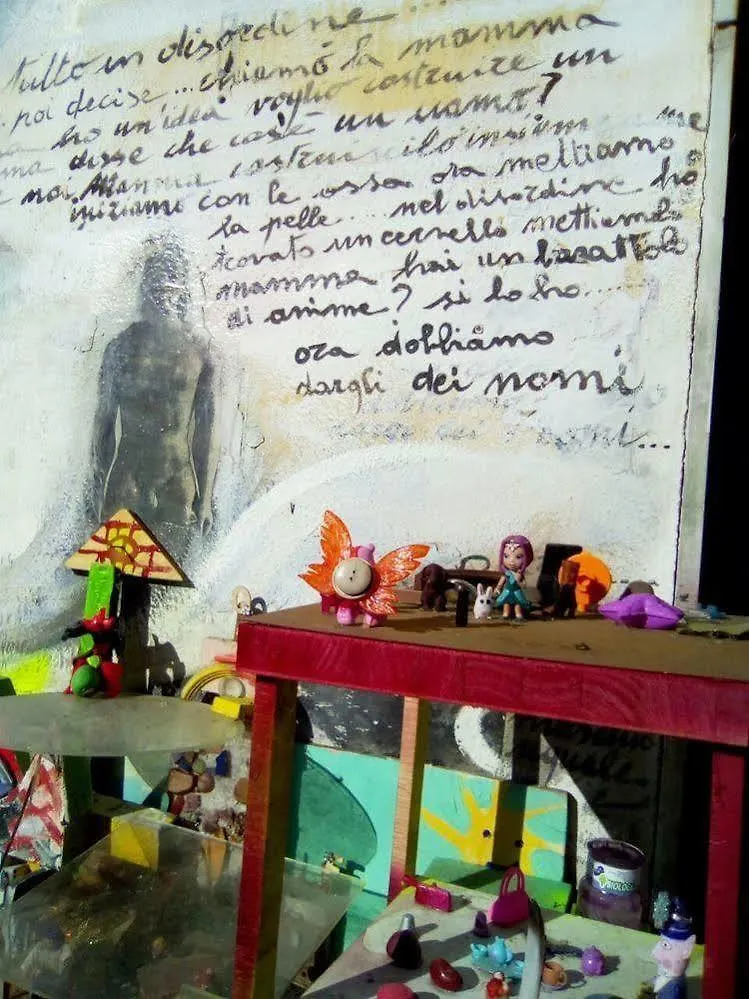 tutto in disordine...
poi decise... chiamò la mamma
ho un'idea voglio costruire un
disse che cos'è un uomo?
noi. Mamma costruiscilo insieme a me
iniziamo con le ossa ora mettiamo
la pelle.... nel disordine ho
trovato un cervello mettiamolo
mamma hai un barattolo
di anime? si lo ho.....
ora dobbiamo
dargli dei nomi
nomi...
BIOLOGI